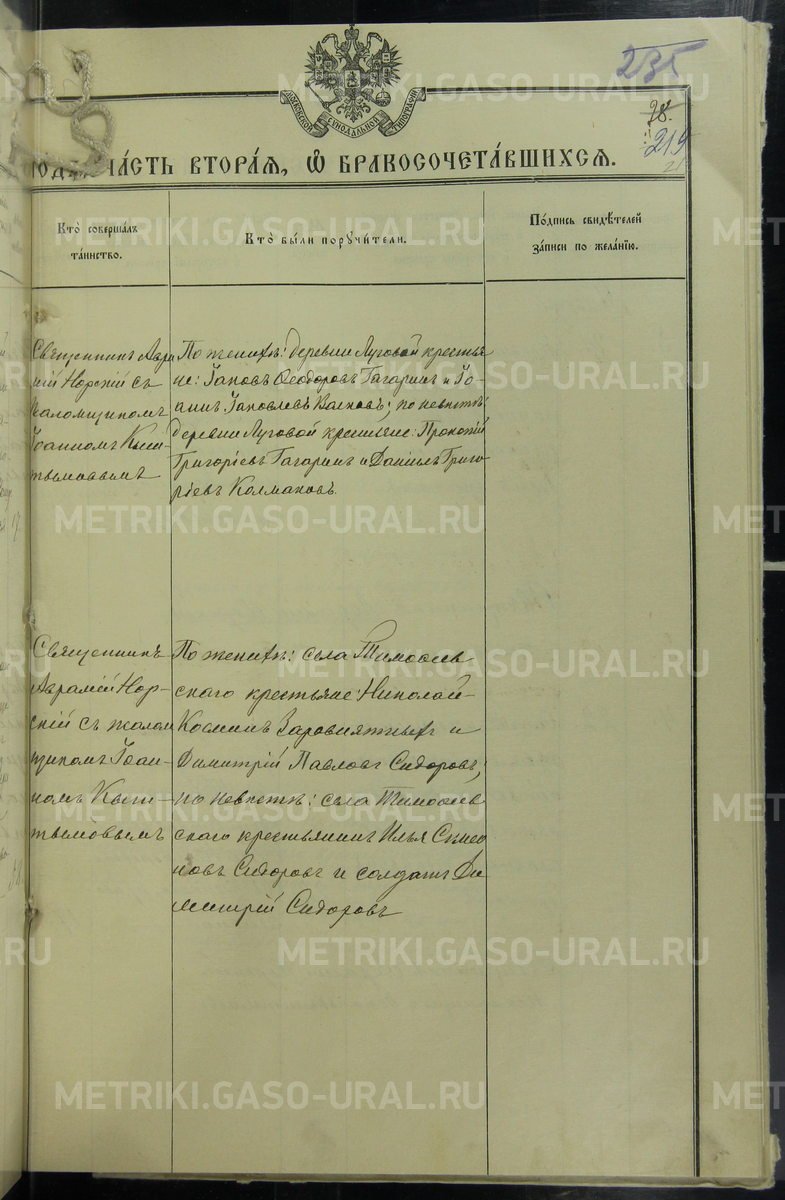 235
28.
219
МОСКОВСКОЙ СѴНОДАЛЬНОЙ ТИПОГРАФІИ
ЧА́СТЬ ВТОРА́Я, Ѡ҆ БРАКОСОЧЕТА́ВШИХСЯ.
Кто̀ соверша́лъ
та́инство.
Кто̀ бы́ли порꙋчи́тели.
По́дпись свидѣ́телей
за́писи по жела́нїю.
Священникъ Авра
мій Норскій съ
псаломщикомъ
Іоанномъ Кыш-
тымовымъ
По женихѣ: деревни Луговой крестья
не: Іаковъ Ѳеодоровъ Гагаринъ и Іо-
аннъ Іаковлевъ ; по невѣстѣ:
деревни Луговой крестьяне: Прокопій
Григоріевъ Гагаринъ и Даніилъ Григо
ріевъ Колмаковъ.
Священникъ
Аврамій Нор-
скій съ псалом
щикомъ Іоан-
номъ Кыш-
тымовымъ
По женихѣ: села Тимоѳеев
скаго крестьяне: Николай
Косминъ Заровнятныхъ и
Димитрій Павловъ Сидоровъ;
по невѣстѣ: села Тимоѳеев
скаго крестьянинъ Илья Симео
новъ Сидоровъ и солдатъ Ди
митрій Сидоровъ
METRIKI.GASO-URAL.RU